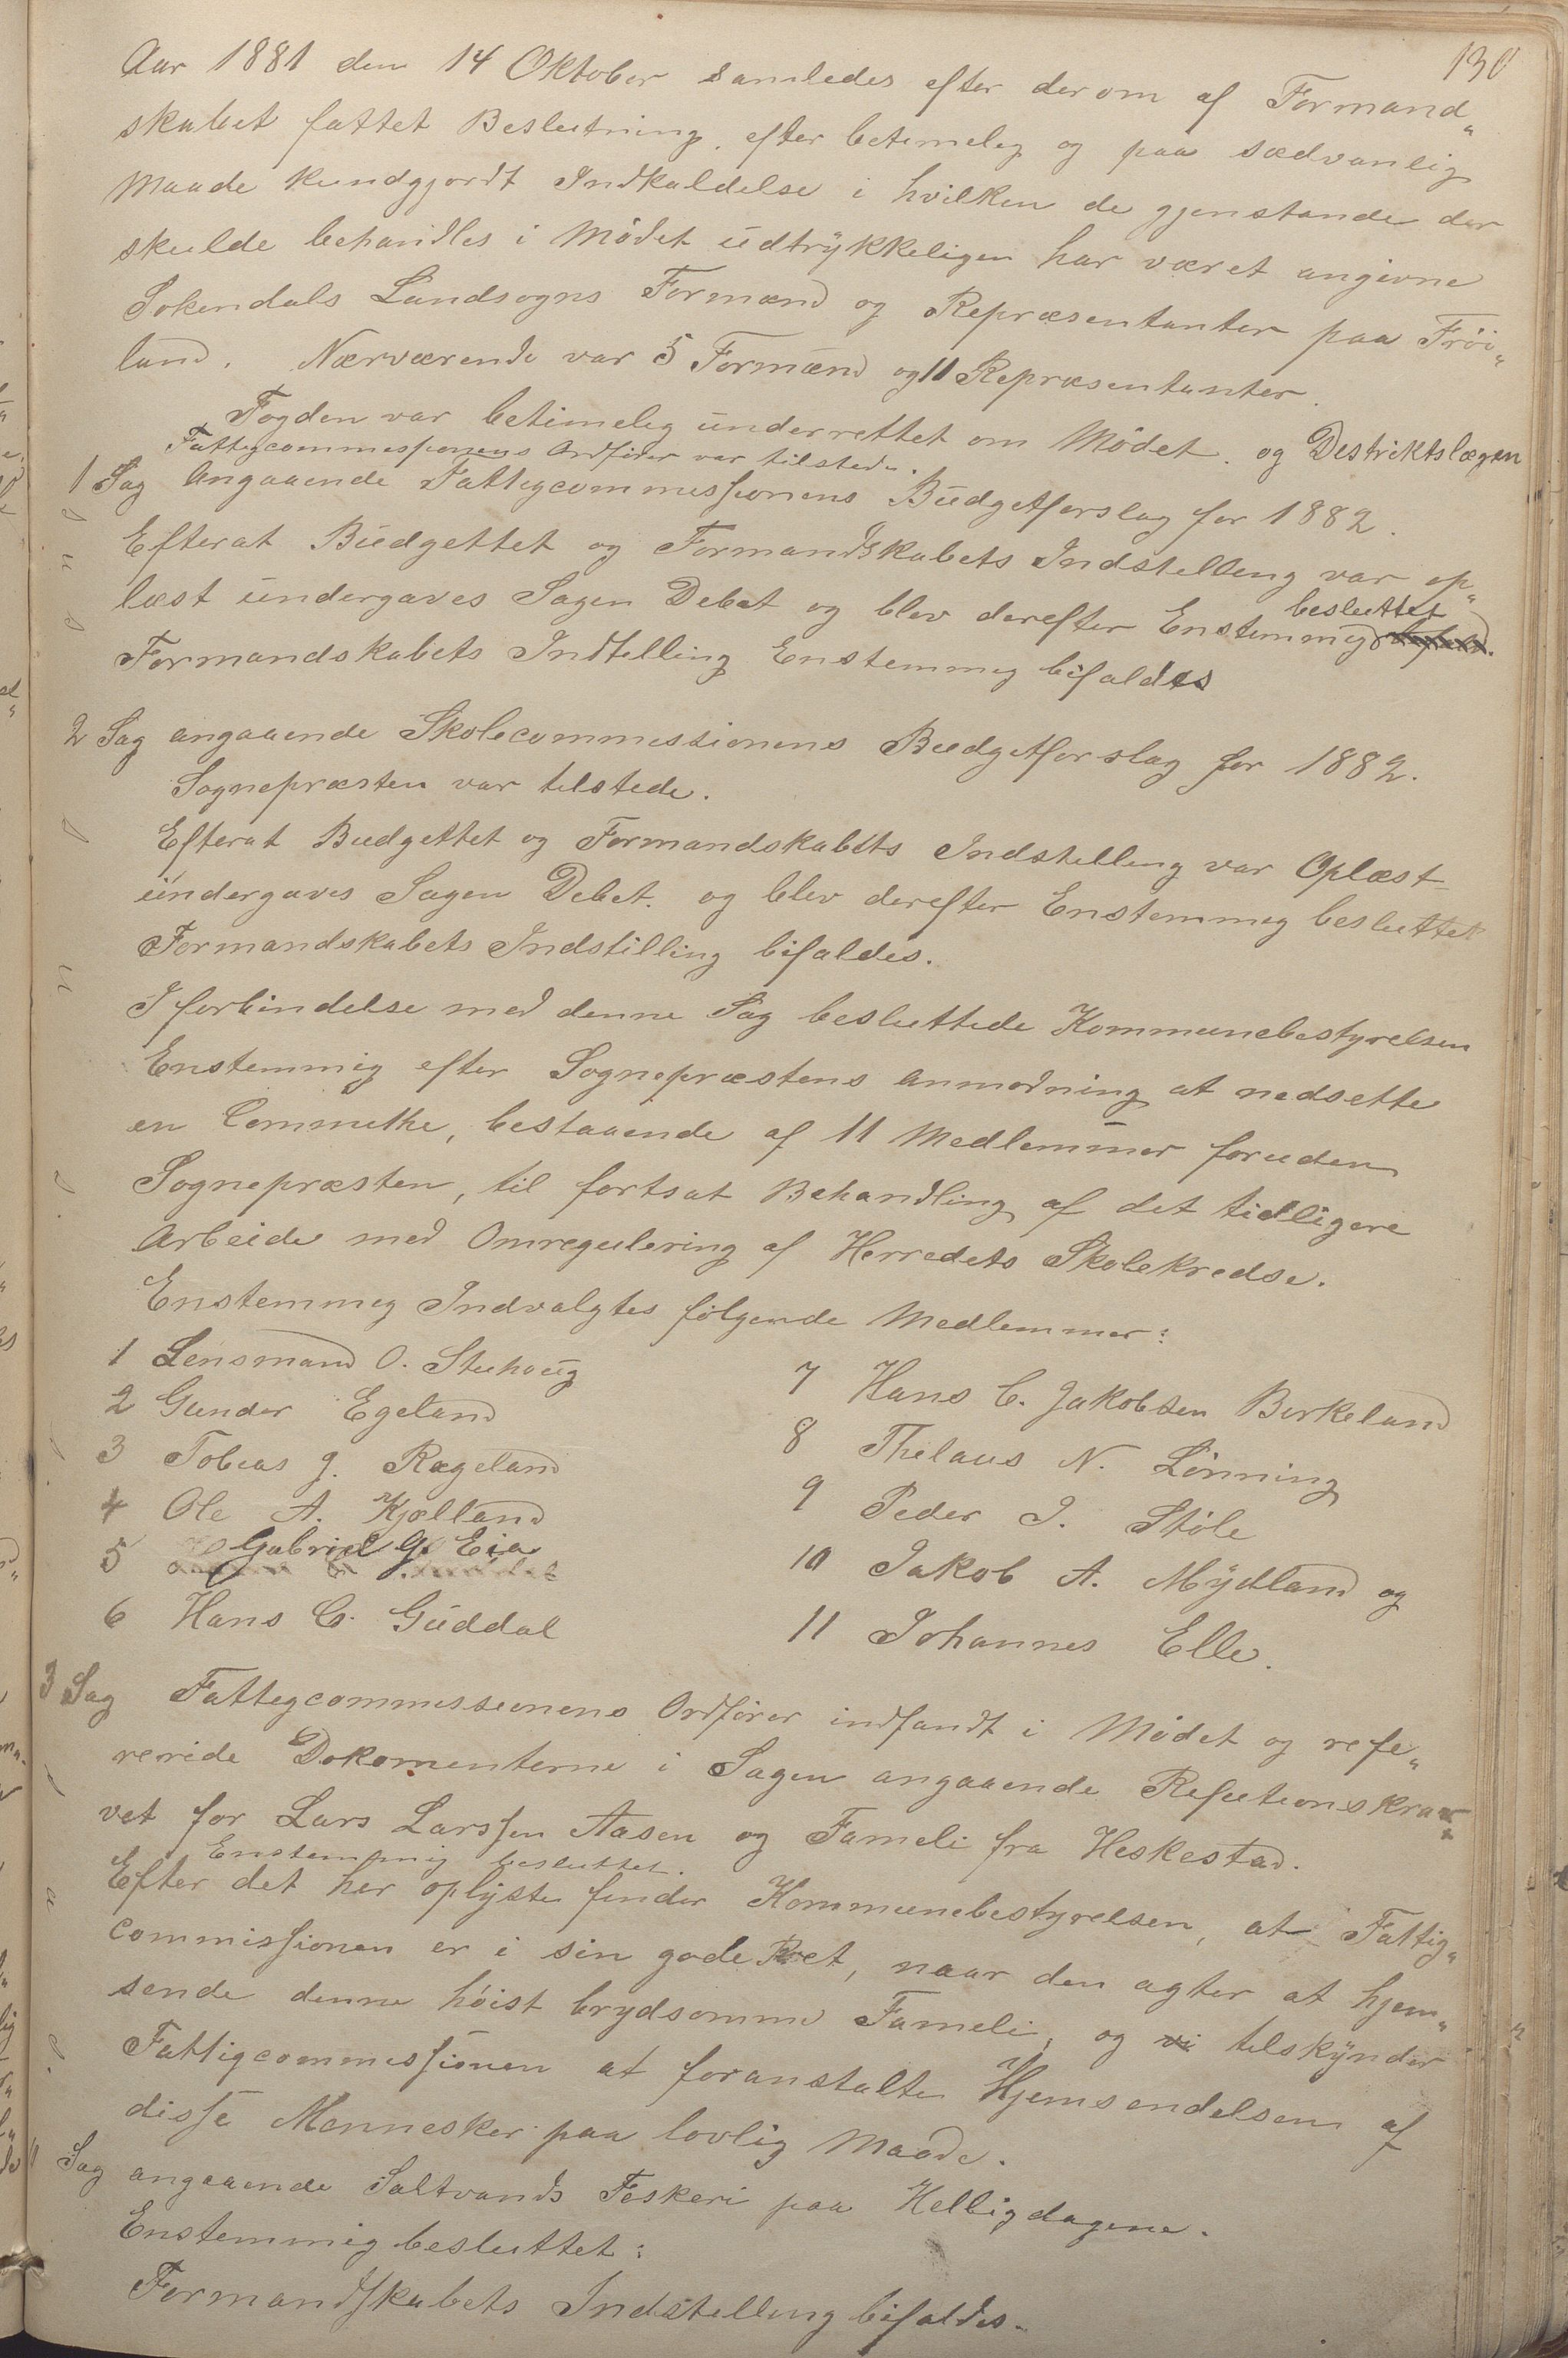 130
Aar 1881 den 14 Oktober samledes efter derom af Formand„
skabet fattet Beslutning, efter betimelig og paa sædvanlig
Maade kundgjordt Indkaldelse i hvilken de gjenstande der
skulde behandles i Mødet udtrykkeligen har været angivne
Sokendals Landsogns Formænd og Repræsentanter paa Frøi„
land. Nærværende var 5 Formænd og 11 Repræsentanter.
Fogden var betimelig underrettet om Mødet. og Destriktslægen
Fattigcommesjonens Ordfører var tilstede.
1 Sag Angaaende Fattigcommissionens Budgetforslag for 1882.
Efterat Budgettet og Formandskabets Indstelleng var op„
læst undergaves Sagen Debat og blev derefter Enstemmig besluttet
Formandskabets Indtelling Enstemmig bifaldes
2 Sag angaaende Skolecommessionens Budgetforslag for 1882.
Sognepræsten var telstede.
Efterat Budgettet og Formandskabets Indstelleng var Oplæst
undergaves Sagen Debat. og blev derefter Enstemmig besluttet
Formandskabets Indstilling bifaldes.
I forbindelse med denne Sag besluttede Kommunebestyrelsen
Enstemmig efter Sognepræstens Anmodning at nedsette
en Committe, bestaaende af 11 Medlemmer foruden
Sognepræsten, til fortsat Behandling af det tidligere
Arbeide med Omregulering af Herredets Skolekredse.
Enstemmig Indvalgtes følgende Medlemmer:
1 Lensmand O. Stuhoug
2 Gunder Egeland
3 Tobias J. Rægeland
4 Ole A. Kjelland
5 Gabriel G. Eia
6 Hans C. Guddal
7 Hans C. Jakobsen Berkeland
8 Thelaus N. Lønning
9 Peder J. Støle
10 Jakob A. Mydland og
11 Johannes Elle.
3 Sag Fattegcommessionens Ordfører indfandt i Mødet og refe„
reride Dokomenterne i Sagen angaaende Refutionskra„
vet for Lars Larssen Aasen og Fameli fra Heskestad.
Enstemmig besluttet.
Efter det her oplyste finder Kommunebestyrelsen, at Fattig„
commissionen er i sin gode Ret, naar den agter at hjem„
sende denne høist brydsomme Fameli, og telskynder
Fattigcommissionen at foranstalte Hjemsendelsen af
disse Mennesker paa lovlig Maade.
Sag angaaende Saltvands Feskeri paa Helligdagene.
Enstemmig besluttet:
Formandskabets Indstelleng bifaldes.